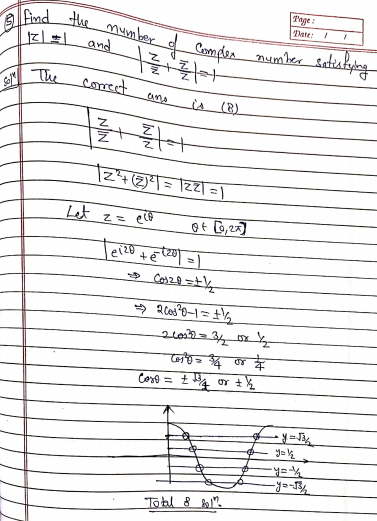 Page :
Date: / /
(5) Find the number of Complex number satisfying
|z| = 1 and | z/z̅ + z̅/z | = 1
Solⁿ The correct ans is (8)
| z/z̅ + z̅/z | = 1
|z² + (z̅)²| = |zz̅| = 1
Let z = e^{iθ} θ ∈ [0, 2π]
|e^{i2θ} + e^{-i2θ}| = 1
⇒ Cos2θ = ±1/2
⇒ 2cos²θ - 1 = ±1/2
2cos²θ = 3/2 or 1/2
Cos²θ = 3/4 or 1/4
Cosθ = ± √3/2 or ± 1/2
y = √3/2
y = 1/2
y = -1/2
y = -√3/2
Total 8 solⁿ.